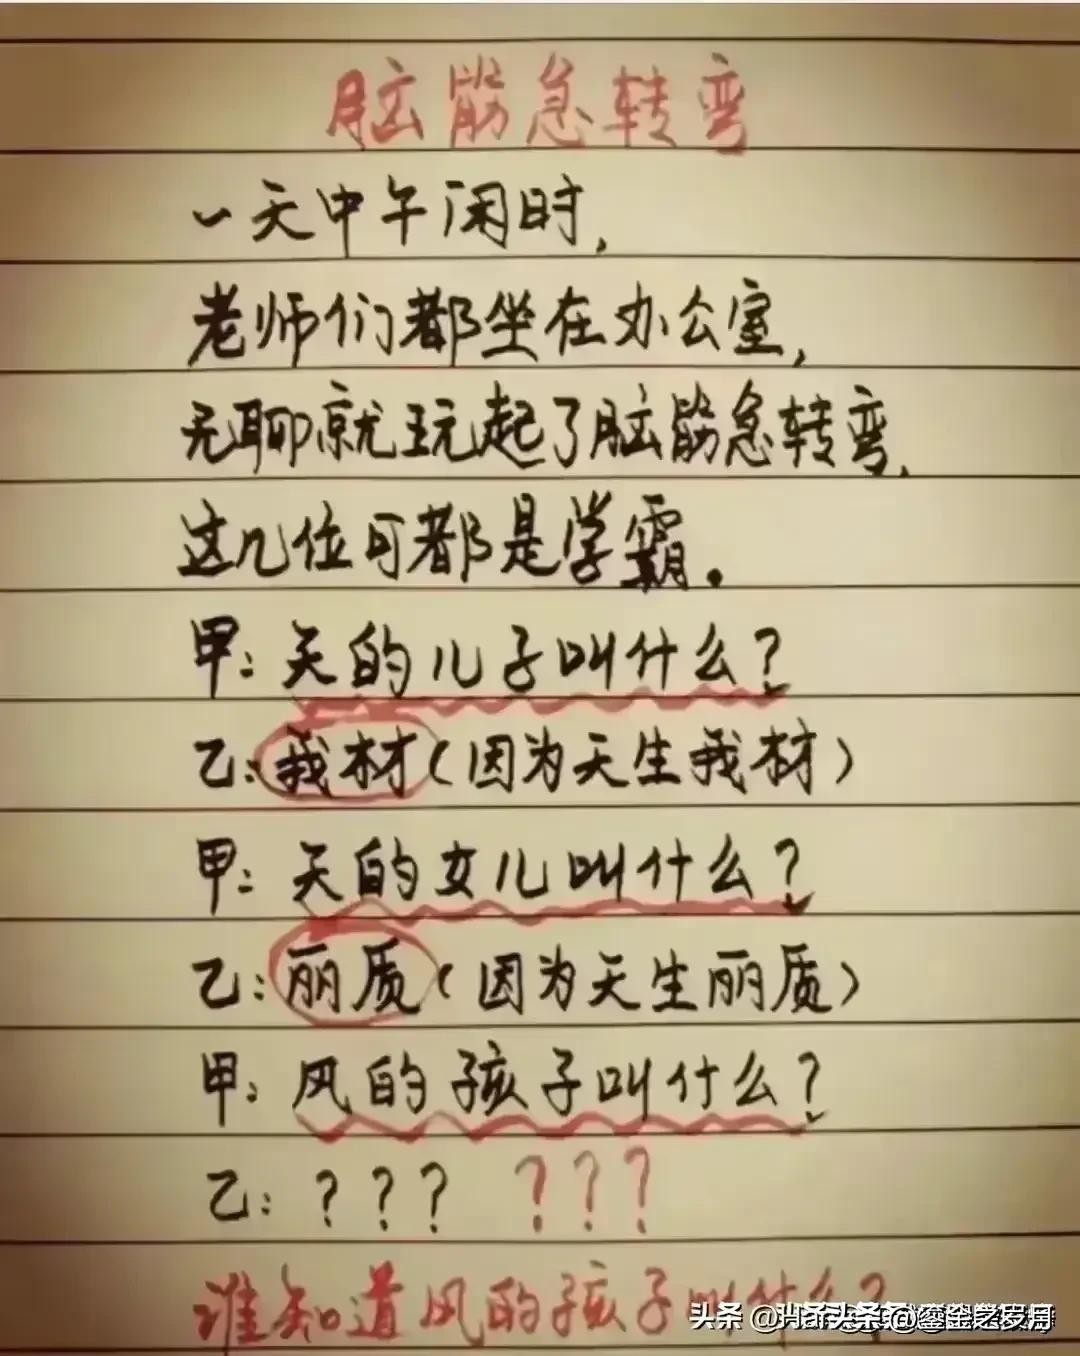 脑筋急转弯
一天中午闲时，
老师们都坐在办公室，
无聊就玩起了脑筋急转弯，
这几位可都是学霸。
甲：天的儿子叫什么？
乙：我材（因为天生我材）
甲：天的女儿叫什么？
乙：丽质（因为天生丽质）
甲：风的孩子叫什么？
乙：？？？ ？？？
谁知道风的孩子叫什么？
头条 @鎏金之岁月